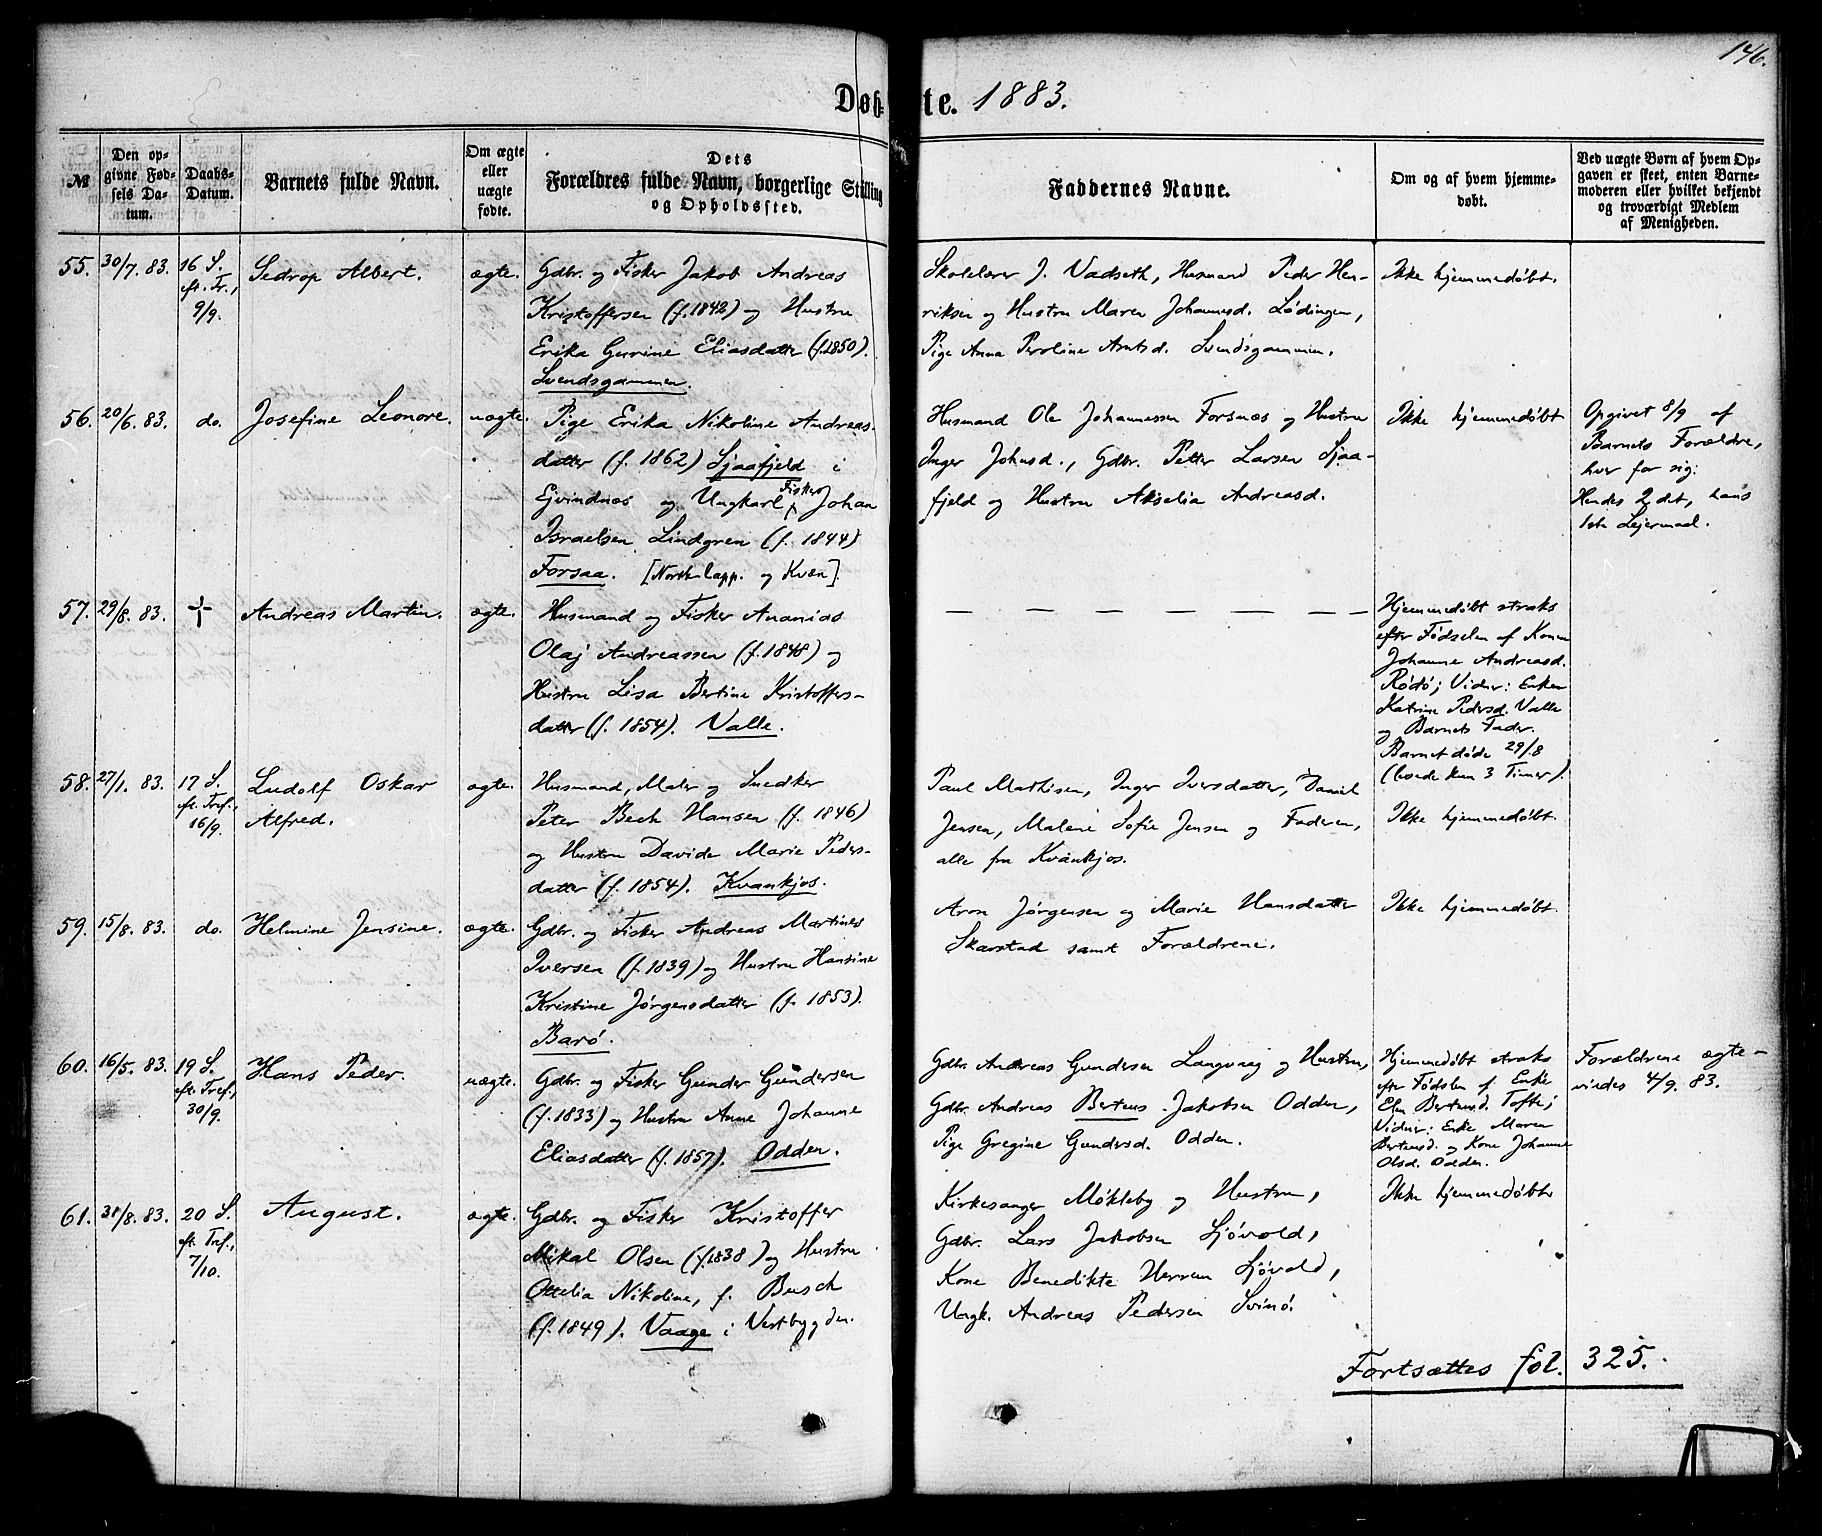 146.
Døbte. 1883.
№
Den opgivne Fødsels Datum.
Daabs-Datum.
Barnets fulde Navn.
Om ægte eller uægte fødte.
Dets Forældres fulde Navn, borgerlige Stilling og Opholdssted.
Faddernes Navne.
Om og af hvem hjemmedøbt.
Ved uægte Børn af hvem Opgaven er skeet, enten Barnemoderen eller hvilket bekjendt og troværdigt Medlem af Menigheden.
55. 30/7. 83. 16 S. eft. Tr., 9/9. Sedrop Albert. ægte.
Gdbr. og Fisker Jakob Andreas
Kristoffersen (f. 1842) og Hustru
Erika Gurine Eliasdatter (f. 1850).
Svendsgammen.
Skolelærer J. Vadseth, Husmand Peder Hen-
riksen og Hustru Maren Johannesd. Lødingen,
Pige Anna Peroline Arntsd. Svendsgammen.
Ikke hjemmedøbt.
56. 20/6. 83. do. Josefine Leonore. uægte.
Pige Erika Nikoline Andreas-
datter (f. 1862) Sjaafjeld i
Ejvindnes og Ungkarl Fisker Johan
Israelsen Lindgren (f. 1844)
Forsaa. [Norsk Lapp. og Kvæn].
Husmand Ole Johannessen Forsnæs og Hustru
Inger Johnsd., Gdbr. Petter Larsen Sjaa-
fjeld og Hustru Akselia Andreasd.
Ikke hjemmedøbt
Opgivet 8/9 af
Barnets Forældre,
hver for sig:
Hendes 2det, hans
1ste Lejermaal.
57. 29/8. 83. † Andreas Martin. ægte.
Husmand og Fisker Ananias
Olaj Andreassen (f. 1848) og
Hustru Lisa Bertine Kristoffers-
datter (f. 1854). Valle.
— — — — — — —
Hjemmedøbt straks
efter Fødselen af Konen
Johanne Andreasd.
Rødø; Vidner: Enken
Katrine Pedersd. Valle
og Barnets Fader.
Barnet døde 29/8
(levede kun 3 Timer).
58. 27/1. 83. 17 S. eft. Tref., 16/9. Ludolf Oskar Alfred. ægte.
Husmand, Maler og Snedker
Peter Bech Hansen (f. 1846)
og Hustru Davida Marie Peders-
datter (f. 1854). Kvankjos.
Paul Mathisen, Inger Iversdatter, Daniel
Jensen, Malene Sofie Jensen og Faderen,
alle fra Kvankjos.
Ikke hjemmedøbt.
59. 15/8. 83. do. Helmine Jensine. ægte.
Gdbr. og Fisker Andreas Martines
Iversen (f. 1839) og Hustru Hansine
Kristine Jørgensdatter (f. 1853).
Barø.
Aron Jørgensen og Marie Hansdatter
Skarstad samt Forældrene.
Ikke hjemmedøbt.
60. 16/5. 83. 19 S. eft. Tref., 30/9. Hans Peder. uægte.
Gdbr. og Fisker Gunder Gundersen
(f. 1833) og Hustru Anne Johanne
Eliasdatter (f. 1857). Odden.
Gdbr. Andreas Gundersen Langvaig og Hustru,
Gdbr. Andreas Berteus Jakobsen Odden,
Pige Gregine Gundersd. Odden.
Hjemmedøbt straks
efter Fødslen af Enke
Elen Berteusd. Tofte;
Vidner: Enke Maren
Berteusd. og Kone Johanne
Olsd. Odden.
Forældrene ægte-
viedes 4/9. 83.
61. 31/8. 83. 20 S. eft. Tref., 7/10. August. ægte.
Gdbr. og Fisker Kristoffer
Mikal Olsen (f. 1838) og Hustru
Ottelia Nikoline, f. Busch
(f. 1849). Vaage i Vestbygden.
Kirkesanger Møkleby og Hustru,
Gdbr. Lars Jakobsen Sjøvold,
Kone Benedikte Sjøvold,
Ungk. Andreas Pedersen Svinø.
Ikke hjemmedøbt
Fortsættes fol. 325.